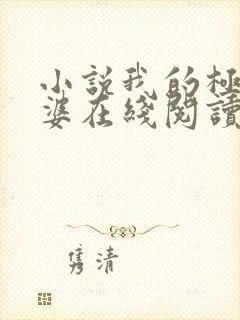 小説我的極
婆在綫閱讀
隽清